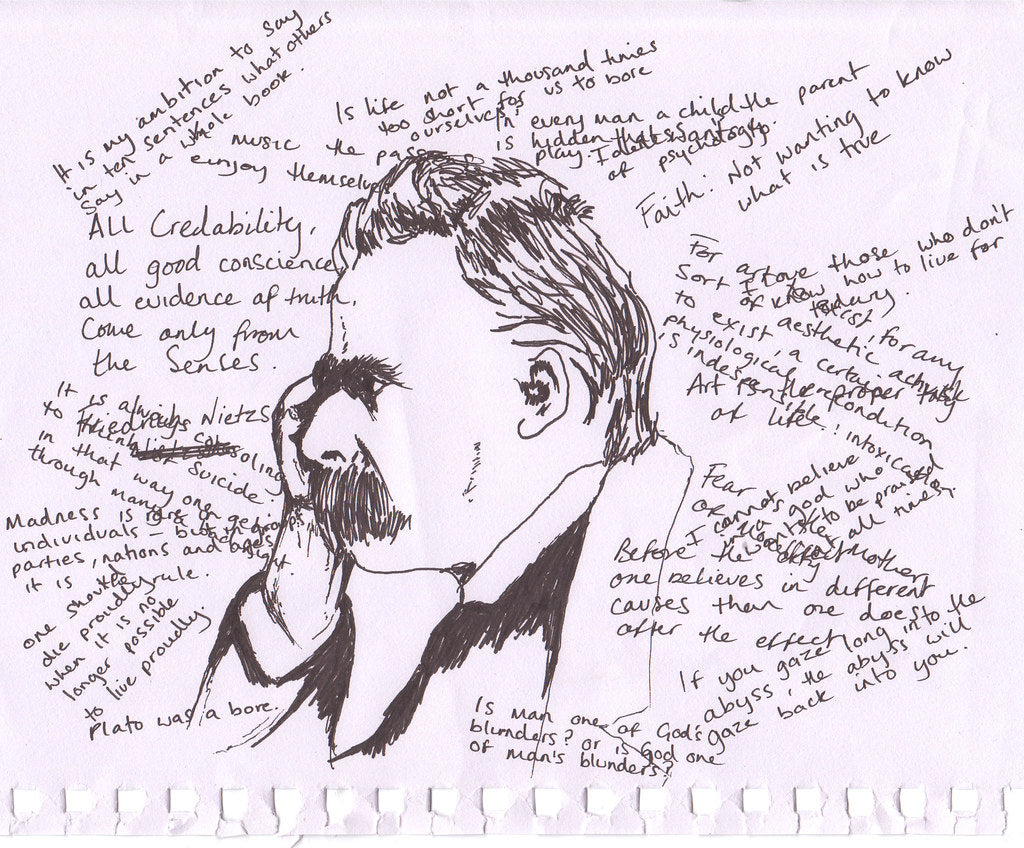 It is my ambition to say
in ten sentences what others
say in a whole book.
Is life not a thousand times
too short for us to bore
ourselves?
music the
enjoy themselves
in every man a child
is hidden that wants to
play.
the parent
of psychology.
Faith: Not wanting to know
what is true
All Credability,
all good conscience,
all evidence of truth,
Come only from
the Senses.
For art to
exist, for any
Sort of aesthetic activity
to exist, a certain
physiological precondition
is indespensible: intoxication
I love those who don't
know how to live for
today.
Art is the proper task
of life.
Friedrich Nietzs
It is always
to think of
suicide.
in that way one gets
through many
Madness is rare in
individuals – but in groups
parties, nations and ages
it is the rule.
one should
die proudly
when it is no
longer possible
to live proudly.
Plato was a bore.
Fear
of Mother
I cannot believe
in a god who
to be praised
all times.
Before the effect
one believes in different
causes than one does
after the effect
If you gaze long into the
abyss, the abyss will
gaze back into you.
Is man one of God's
blunders? or is God one
of man's blunders?